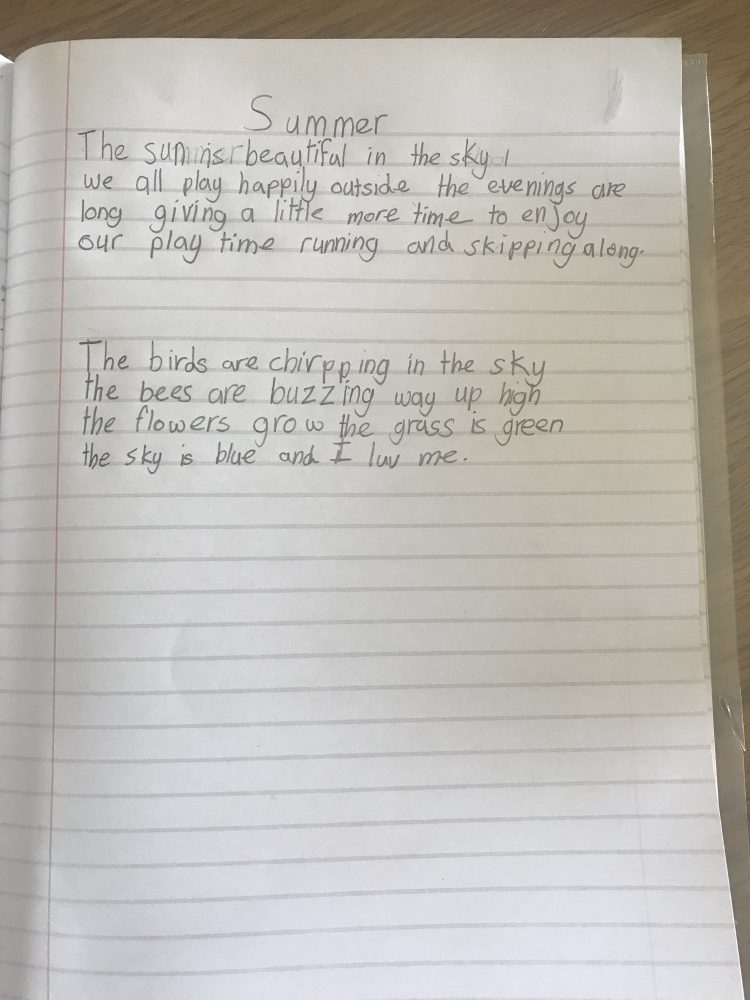 Summer
The sun is beautiful in the sky
we all play happily outside the evenings are
long giving a little more time to enjoy
our play time running and skipping along.
The birds are chirpping in the sky
the bees are buzzing way up high
the flowers grow the grass is green
the sky is blue and I luv me.